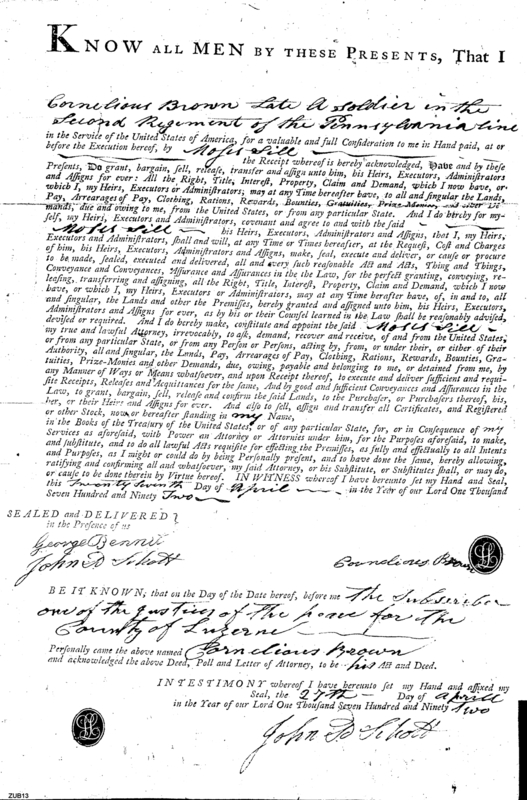 KNOW ALL MEN BY THESE PRESENTS, That I
Cornelious Brown Late A Soldier in the
Second Regement of the Pennsylvania line
in the Service of the United States of America, for a valuable and full Consideration to me in Hand paid, at or
before the Execution hereof, by Moses Sill
the Receipt whereof is hereby acknowledged, Have and by these
Presents, Do grant, bargain, sell, release, transfer and assign unto him, his Heirs, Executors, Administrators
and Assigns for ever: All the Right, Title, Interest, Property, Claim and Demand, which I now have, or
which I, my Heirs, Executors or Administrators; may at any Time hereafter have, to all and singular the Lands,
Pay, Arrearages of Pay, Clothing, Rations, Rewards, Bounties, Gratuities, Prize-Money and other De-
mands, due and owing to me, from the United States, or from any particular State. And I do hereby for my-
self, my Heirs, Executors and Administrators, covenant and agree to and with the said
Moses Sill his Heirs, Executors, Administrators and Assigns, that I, my Heirs,
Executors and Administrators, shall and will, at any Time or Times hereafter, at the Request, Cost and Charges
of him, his Heirs, Executors, Administrators and Assigns, make, seal, execute and deliver, or cause or procure
to be made, sealed, executed and delivered, all and every such reasonable Act and Acts, Thing and Things,
Conveyance and Conveyances, Assurance and Assurances in the Law, for the perfect granting, conveying, re-
leasing, transferring and assigning, all the Right, Title, Interest, Property, Claim and Demand, which I now
have, or which I, my Heirs, Executors or Administrators, may at any Time hereafter have, of, in and to, all
and singular, the Lands and other the Premisses, hereby granted and assigned unto him, his Heirs, Executors,
Administrators and Assigns for ever, as by his or their Counsel learned in the Law shall be reasonably advised,
devised or required. And I do hereby make, constitute and appoint the said Moses Sill
my true and lawful Attorney, irrevocably, to ask, demand, recover and receive, of and from the United States,
or from any particular State, or from any Person or Persons, acting by, from, or under their, or either of their
Authority, all and singular, the Lands, Pay, Arrearages of Pay, Clothing, Rations, Rewards, Bounties, Gra-
tuities, Prize-Monies and other Demands, due, owing, payable and belonging to me, or detained from me, by
any Manner of Ways or Means whatsoever, and upon Receipt thereof, to execute and deliver sufficient and requi-
site Receipts, Releases and Acquittances for the same, And by good and sufficient Conveyances and Assurances in the
Law, to grant, bargain, sell, release and confirm the said Lands, to the Purchaser, or Purchasers thereof, his,
her, or their Heirs and Assigns for ever. And also to sell, assign and transfer all Certificates, and Registered
or other Stock, now, or hereafter standing in my Name,
in the Books of the Treasury of the United States, or of any particular State, for, or in Consequence of my
Services as aforesaid, with Power an Attorney or Attornies under him, for the Purposes aforesaid, to make,
and substitute, and to do all lawful Acts requisite for effecting the Premisses, as fully and effectually to all Intents
and Purposes, as I might or could do by being Personally present, and to have done the same, hereby allowing,
ratifying and confirming all and whatsoever, my said Attorney, or his Substitute, or Substitutes shall, or may do,
or cause to be done therein by Virtue hereof. IN WITNESS whereof I have hereunto set my Hand and Seal,
this twenty Seventh Day of Aprill in the Year of our Lord One Thousand
Seven Hundred and Ninety Two
SEALED and DELIVERED
in the Presence of us
George Bennit
John P Schott
Cornelious Brown
LS
BE IT KNOWN; that on the Day of the Date hereof, before me the Subscriber
one of the Justices of the peace for the
County of Luzerne
Personally came the above named Cornelious Brown
and acknowledged the above Deed, Poll and Letter of Attorney, to be his Act and Deed.
IN TESTIMONY whereof I have hereunto set my Hand and affixed my
Seal, the 27th Day of Aprill
in the Year of our Lord One Thousand Seven Hundred and Ninety two
LS
John P Schott
ZUB13